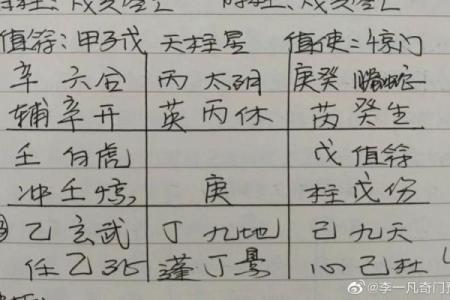 值符：甲子戊 天柱星 值使：惊门
辛 六合 丙 太阴 庚癸 腾蛇
辅 辛 开 英 丙 休 芮 癸 生
壬 白虎 戊 值符
冲 壬 惊 庚 柱 戊 伤
乙 玄武 丁 九地 己 九天
任 乙 死 蓬 丁 景 心 己 杜
@李一凡奇门预